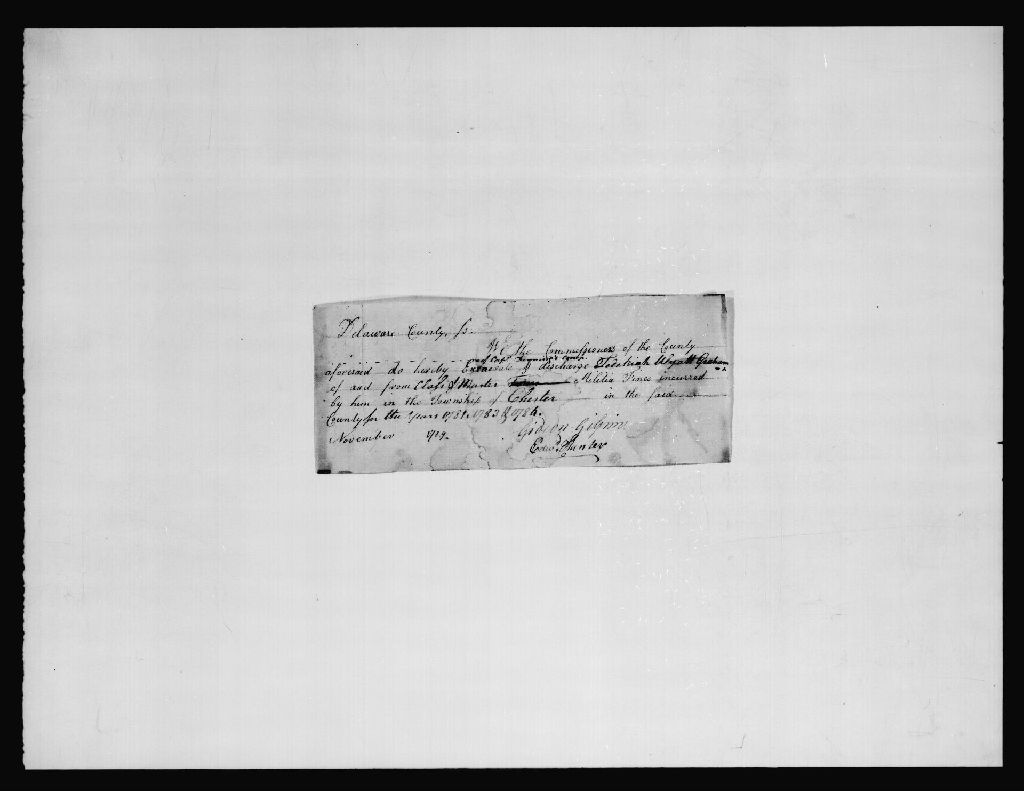 Delaware County, ss.
We the Commissioners of the County
aforesaid do hereby Exonerate & discharge
of and from Class & Muster Militia Fines incurred
by him in the Township of Chester in the said
County for the Years 1781, 1783 & 1784.
November 1789. Gideon Gilpin
Edwd Hunter